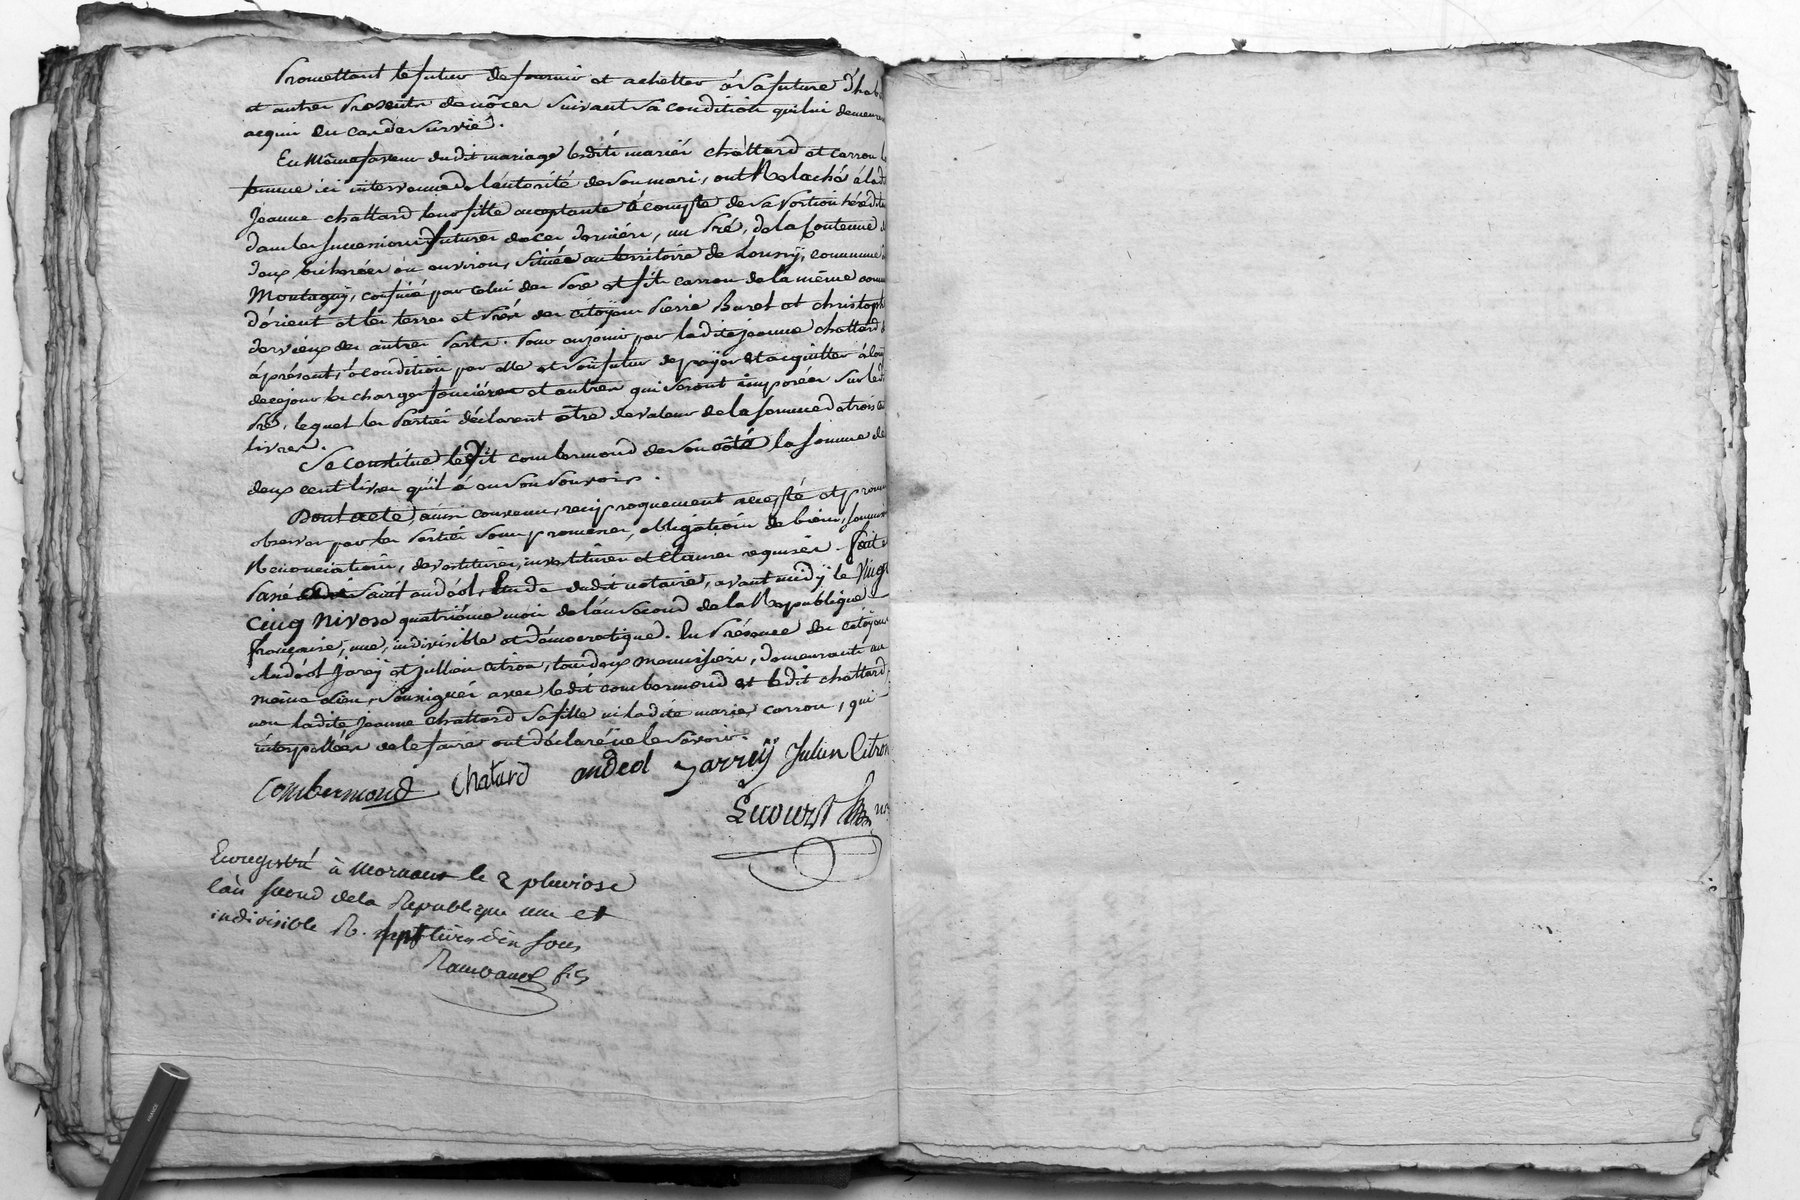 Promettant le futur de fournir et achetter à sa future d'hab
et autres presents de nôces suivant sa condition qui lui demeure
acquis en cas de survie.
En même faveur dudit mariage lesdits mariés chattard et carron la
femme ici intervenue de l'autorité de son mari, ont Relaché à lad
Jeanne chattard leur fille acceptante à compte de sa portion hérédit
dans les successions futures de ces derniers, un Pré, de la Contenue d
deux bicherées ou environ, située au territoire de Loursy, commune d
Montagny, confiné par celui des Pere et fils carron de la même comm
d'orient et les terres et Prés des citöyens Pierre Buret et christoph
dervieux des autres parts. Pour en jouir par ladite jeanne chattard d
àprésent, à condition par elle et son futur de payer et acquitter à l'av
de ce jour les charges foncières et autres qui seront imposées sur led
Pré, lequel les Parties déclarent être de valeur de la somme de trois ce
livres.
Se constitue ledit combermond de son côté la somme de
deux cent livres qu'il à en son pouvoir.
Dont acte, ainsi convenu, reciproquement accepté et prom
observer par les Parties sous promesses, obligations de biens, soumissi
Renonciations, devestitures, investitures et clauses requises. Fait e
Passé Saint andéol, Etude dudit notaire, avant midÿ le Vingt
cinq Nivose quatrième mois de l'an Second de la République
française, une, indivisible et démocratique. En Présence des citöyens
Andéol Jarej et jullien citron, tous deux menuisiers, demeurants au
même lieu, Soussignés avec ledit combermond et ledit chattard,
non ladite jeanne chattard sa fille ni ladite marie carron, qui
interpellées de le faire ont déclaré ne le savoir.
Combermond Chatard andeol jarreÿ Julien Citron
Enregistré à Mornant le 2 pluviose
l'an second de la Republique une et
indivisible R. sept livres dix sous